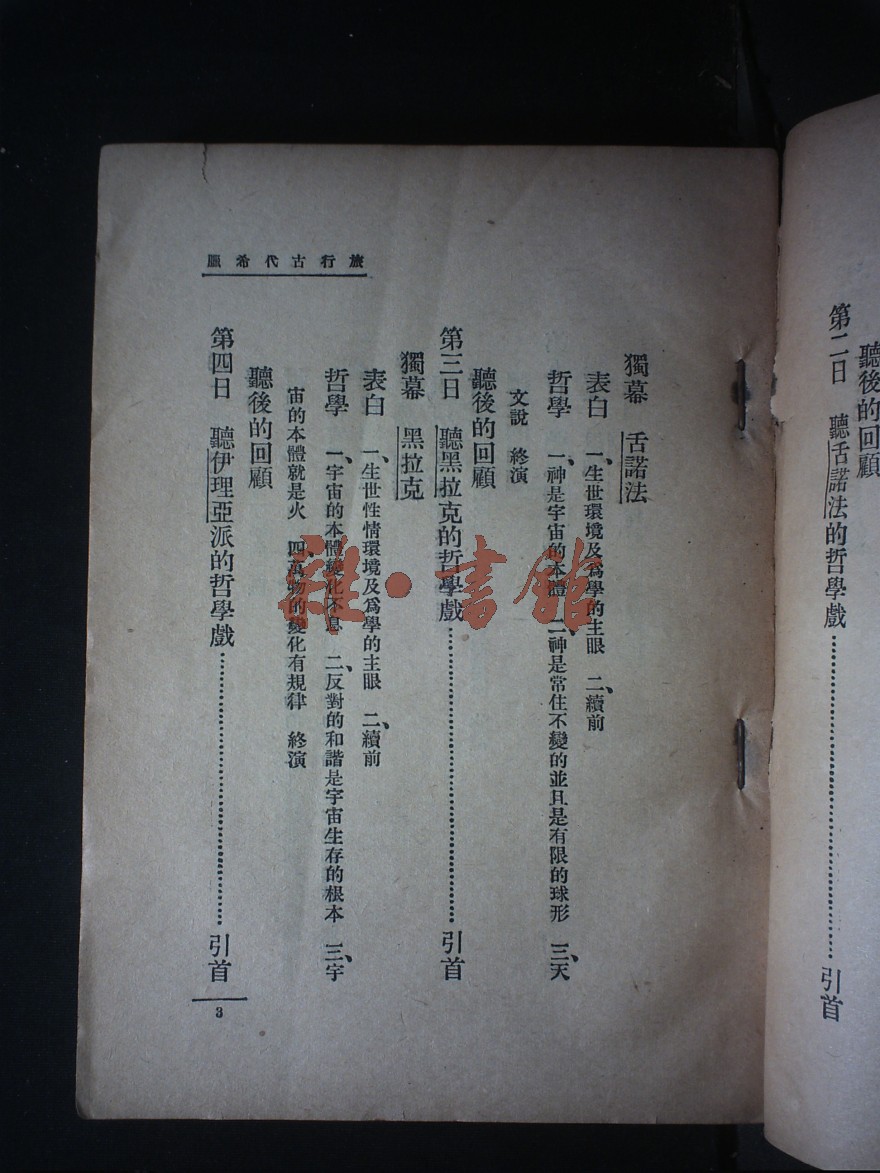 聽後的回顧
第二日　聽舌諾法的哲學戲……引首
獨幕　舌諾法
表白　一、生世環境及爲學的主眼　二、續前
哲學　一、神是宇宙的本體　二、神是常住不變的並且是有限的球形　三、天
文說　終演
聽後的回顧
第三日　聽黑拉克的哲學戲……引首
獨幕　黑拉克
表白　一、生世性情環境及爲學的主眼　二、續前
哲學　一、宇宙的本體變化不息　二、反對的和諧是宇宙生存的根本　三、宇
宙的本體就是火　四、萬物的變化有規律　終演
聽後的回顧
第四日　聽伊理亞派的哲學戲……引首
旅行古代希臘
3
雜·書館